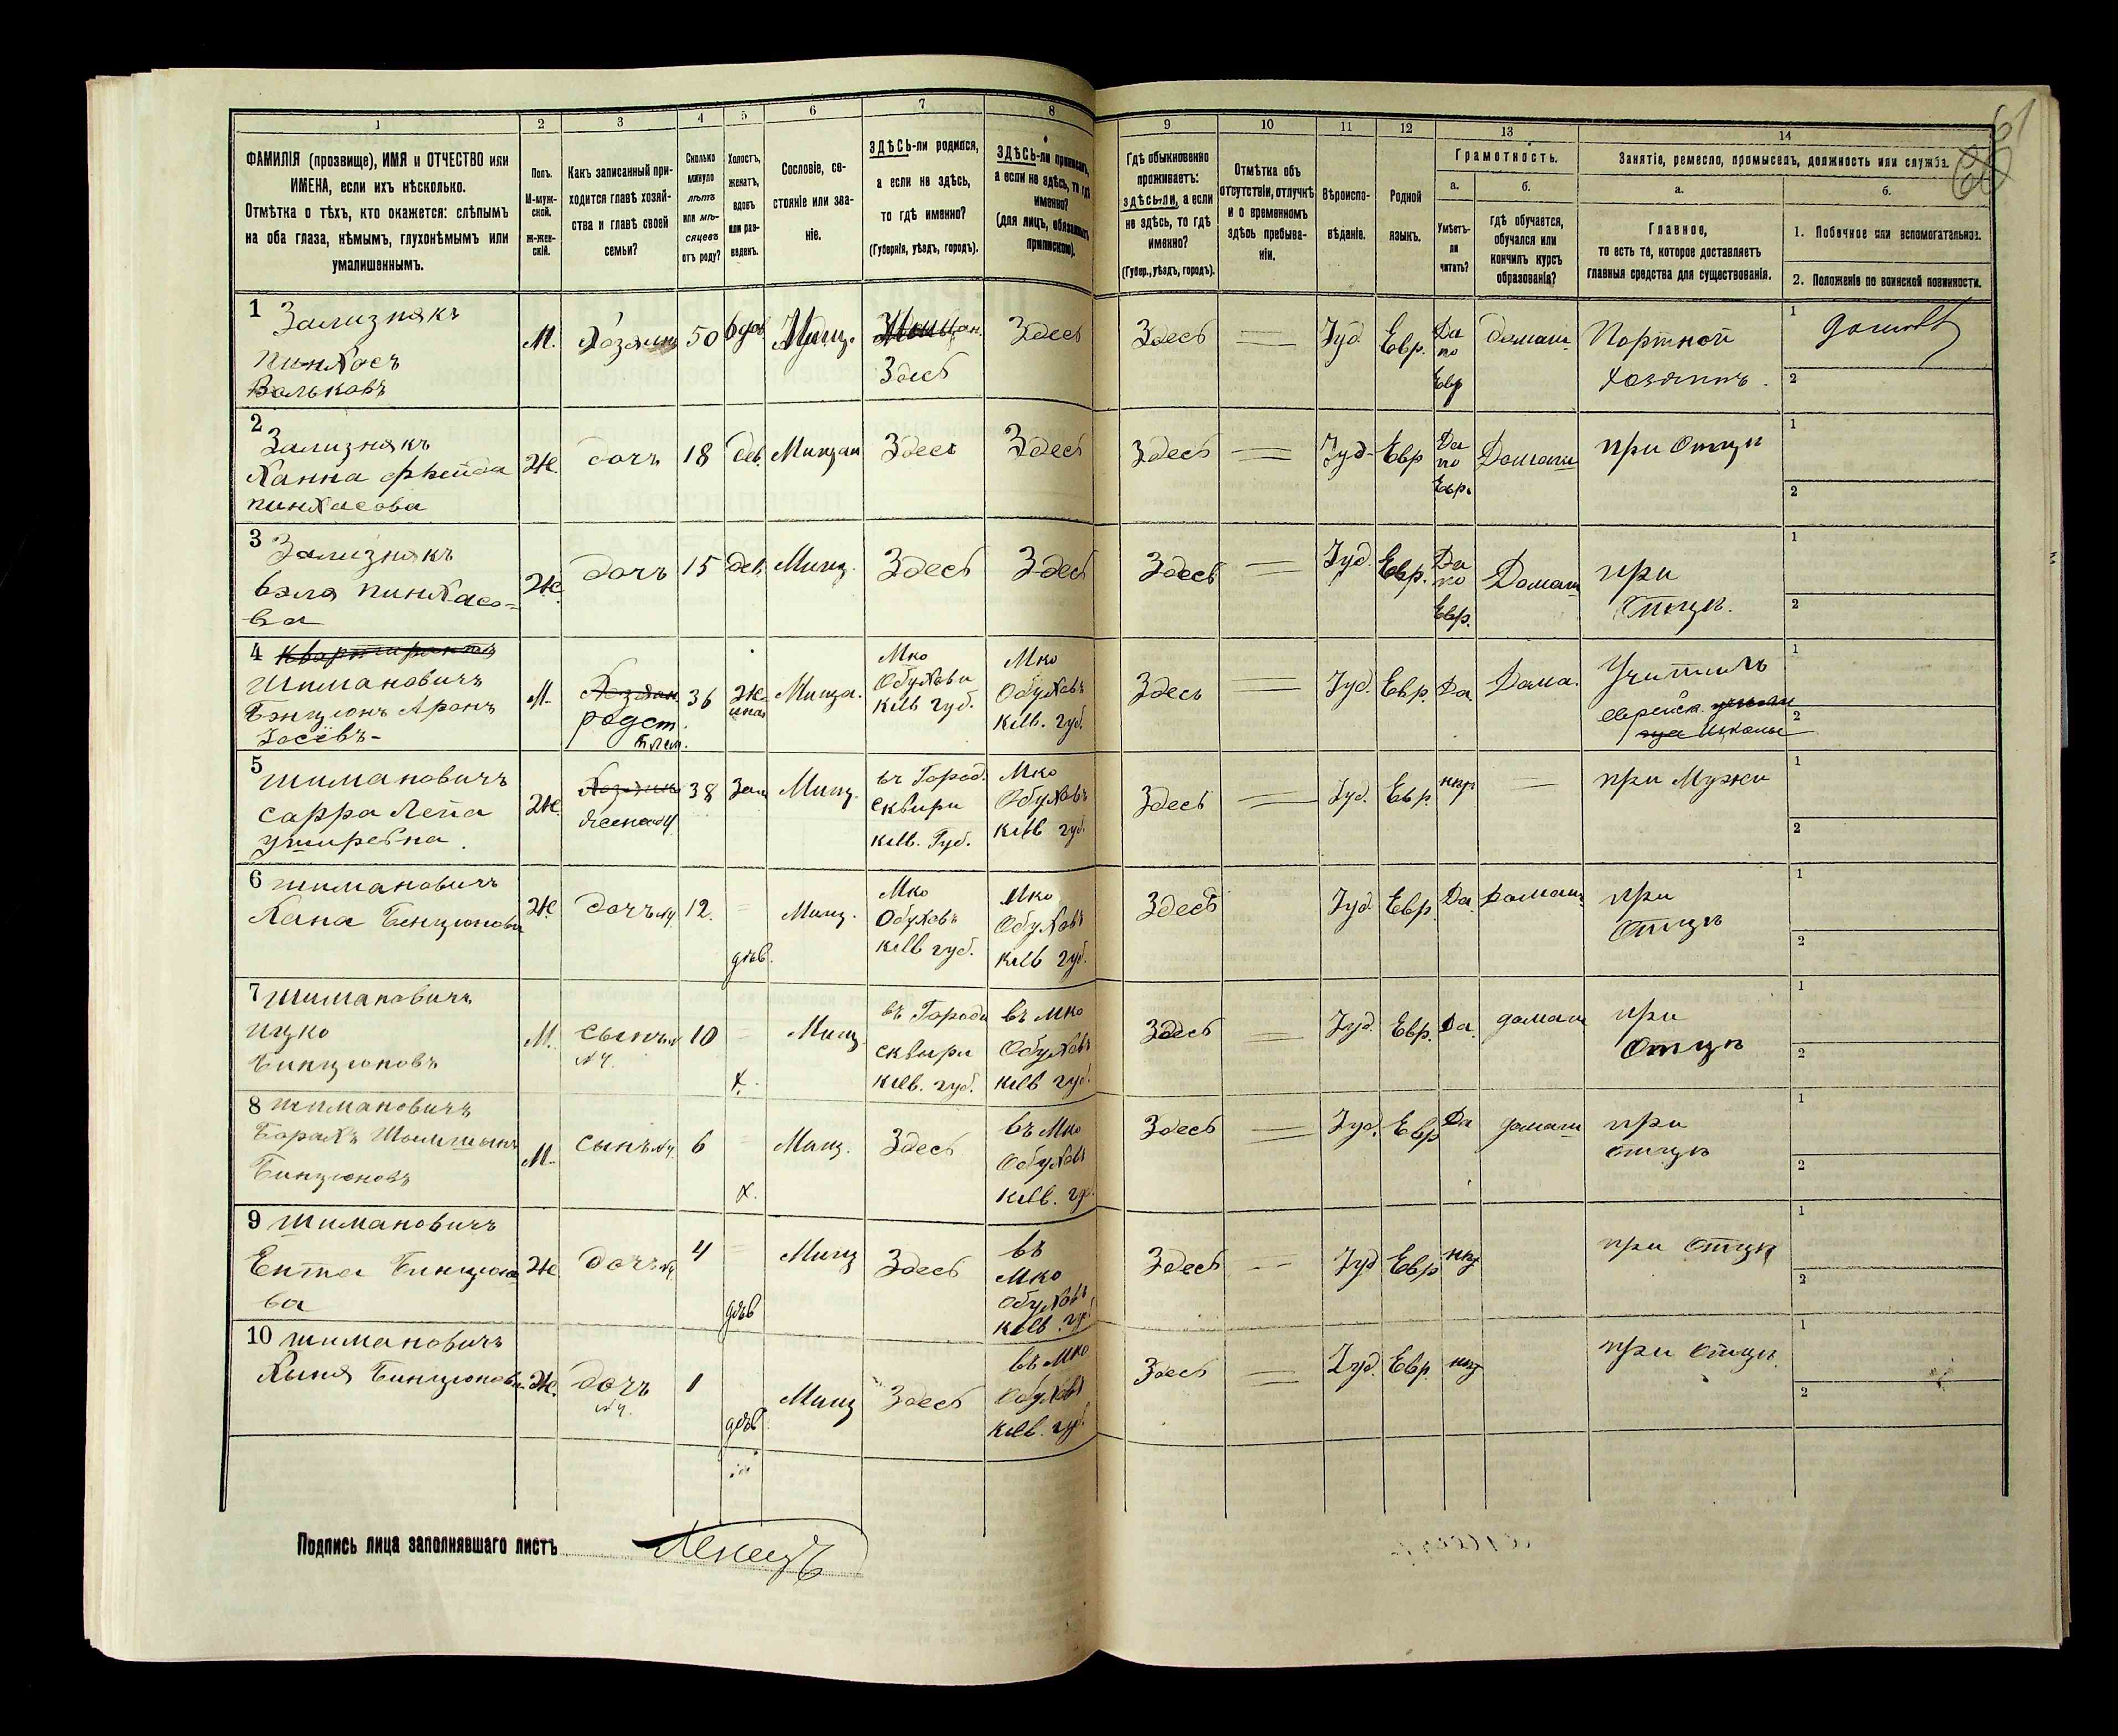 1
2
3
4
5
6
7
8
ФАМИЛІЯ (прозвище), ИМЯ и ОТЧЕСТВО или
ИМЕНА, если ихъ нѣсколько.
Отмѣтка о тѣхъ, кто окажется: слѣпымъ
на оба глаза, нѣмымъ, глухонѣмымъ или
умалишеннымъ.
Полъ.
М-муж-
ской.
Ж-жен-
скій.
Какъ записанный при-
ходится главѣ хозяй-
ства и главѣ своей
семьи?
Сколько
минуло
лѣтъ
или мѣ-
сяцевъ
отъ роду?
Холостъ,
женатъ,
вдовъ
или раз-
веденъ.
Сословіе, со-
стояніе или зва-
ніе.
ЗДѢСЬ-ли родился,
а если не здѣсь,
то гдѣ именно?
(Губернія, уѣздъ, городъ).
ЗДѢСЬ-ли приписанъ,
а если не здѣсь, то гдѣ
именно?
(для лицъ, обязанныхъ
припискою).
9
10
11
12
13
14
Гдѣ обыкновенно
проживаетъ:
здѣсь-ли, а если
не здѣсь, то гдѣ
именно?
(Губер., уѣздъ, городъ).
Отмѣтка объ
отсутствіи, отлучкѣ
и о временномъ
здѣсь пребыва-
ніи.
Вѣроиспо-
вѣданіе.
Родной
языкъ.
Грамотность.
а.
б.
Умѣетъ-
ли
читать?
гдѣ обучается,
обучался или
кончилъ курсъ
образованія?
Занятіе, ремесло, промыселъ, должность или служба.
а.
б.
Главное,
то есть то, которое доставляетъ
главныя средства для существованія.
1. Побочное или вспомогательное.
2. Положеніе по воинской повинности.
61
1
Зализнякъ
Пинхосъ
Вольковъ
М.
Хозяинъ
50
вдов
Мѣщ.
Здесь
Здесь
Здесь
Іуд.
Евр.
Да
по
Евр
домаш.
Портной
хозяинъ.
1
2
2
Зализнякъ
Ханна Фрейда
Пинхасова
Ж.
дочь
18
дев.
Мищан
Здесь
Здесь
Здесь
Іуд.
Евр
Да
по
Евр.
Домаш
при Отци
1
2
3
Зализнякъ
Бэля Пинхасо-
ва
Ж.
дочь
15
дев.
Мищ.
Здесь
Здесь
Здесь
Іуд.
Евр.
Да
по
Евр.
Домаш
при
Отцѣ.
1
2
4 Квартирантъ
Шимановичъ
Бэнціонъ Аронъ
Іосёвъ-
М.
Хозяин
родст.
плем.
36
Же
Мища.
Мко
Обухови
Кіев губ.
Мко
Обуховъ
Кіев. губ.
Здесь
Іуд.
Евр.
Да.
Дома.
Учитиль
еврейск.
Школы
1
2
5
Шимановичъ
Сарра Лепа
Ушеревна.
Ж.
жена №4
38
Зам
Мищ.
въ Город.
Сквири
Кіев. Губ.
Мко
Обуховъ
Кіев губ.
Здесь
Іуд.
Евр
нѣт
при Мужи
1
2
6 Шимановичъ
Хана Бенціонова
Ж.
дочь №4
12.
дѣв.
Мищ.
Мко
Обуховъ
Кіев губ.
Мко
Обуховъ
Кіев губ.
Здесь
Іуд.
Евр.
Да.
домаш.
при
Отцѣ
1
2
7 Шимановичъ
Ицко
Бинціоновъ
М.
Сынъ
№4.
10
х.
Мищ.
въ Городи
Сквири
Кіев. губ.
въ Мко
Обуховъ
Кіев губ.
Здесь
Іуд.
Евр.
Да.
домаш
при
Отцѣ
1
2
8 Шимановичъ
Борахъ
Бинціоновъ
М.
Сынъ №4.
6
х.
Мищ.
Здесь
въ Мко
Обуховъ
Кіев. губ.
Здесь
Іуд.
Евр
Да
домаш
при
отцѣ
1
2
9 Шимановичъ
Ента Бинціоно
ва
Ж.
дочь №4
4
дѣв
Мищ
Здесь
въ
Мко
Обуховъ
Кіев. губ.
Здесь
Іуд
Евр
нѣт
при отцѣ
1
2
10 Шимановичъ
Хыня Бинціонова
Ж.
дочь
№4.
1
дѣв.
Мищ
Здесь
въ Мко
Обуховъ
Кіев. губ.
Здесь
Іуд.
Евр
нѣт
при отцѣ.
1
2
Подпись лица заполнявшаго листъ